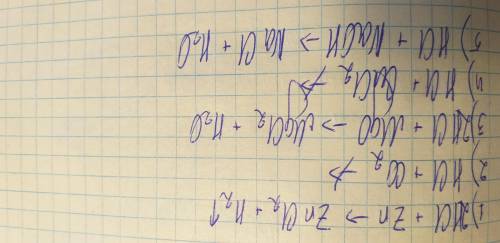 1) 2HCl + Zn → ZnCl₂ + H₂↑
2) HCl + ↛
3) 2HCl + MgO → MgCl₂ + H₂O
4) HCl + ↛
5) HCl + NaOH → NaCl + H₂O